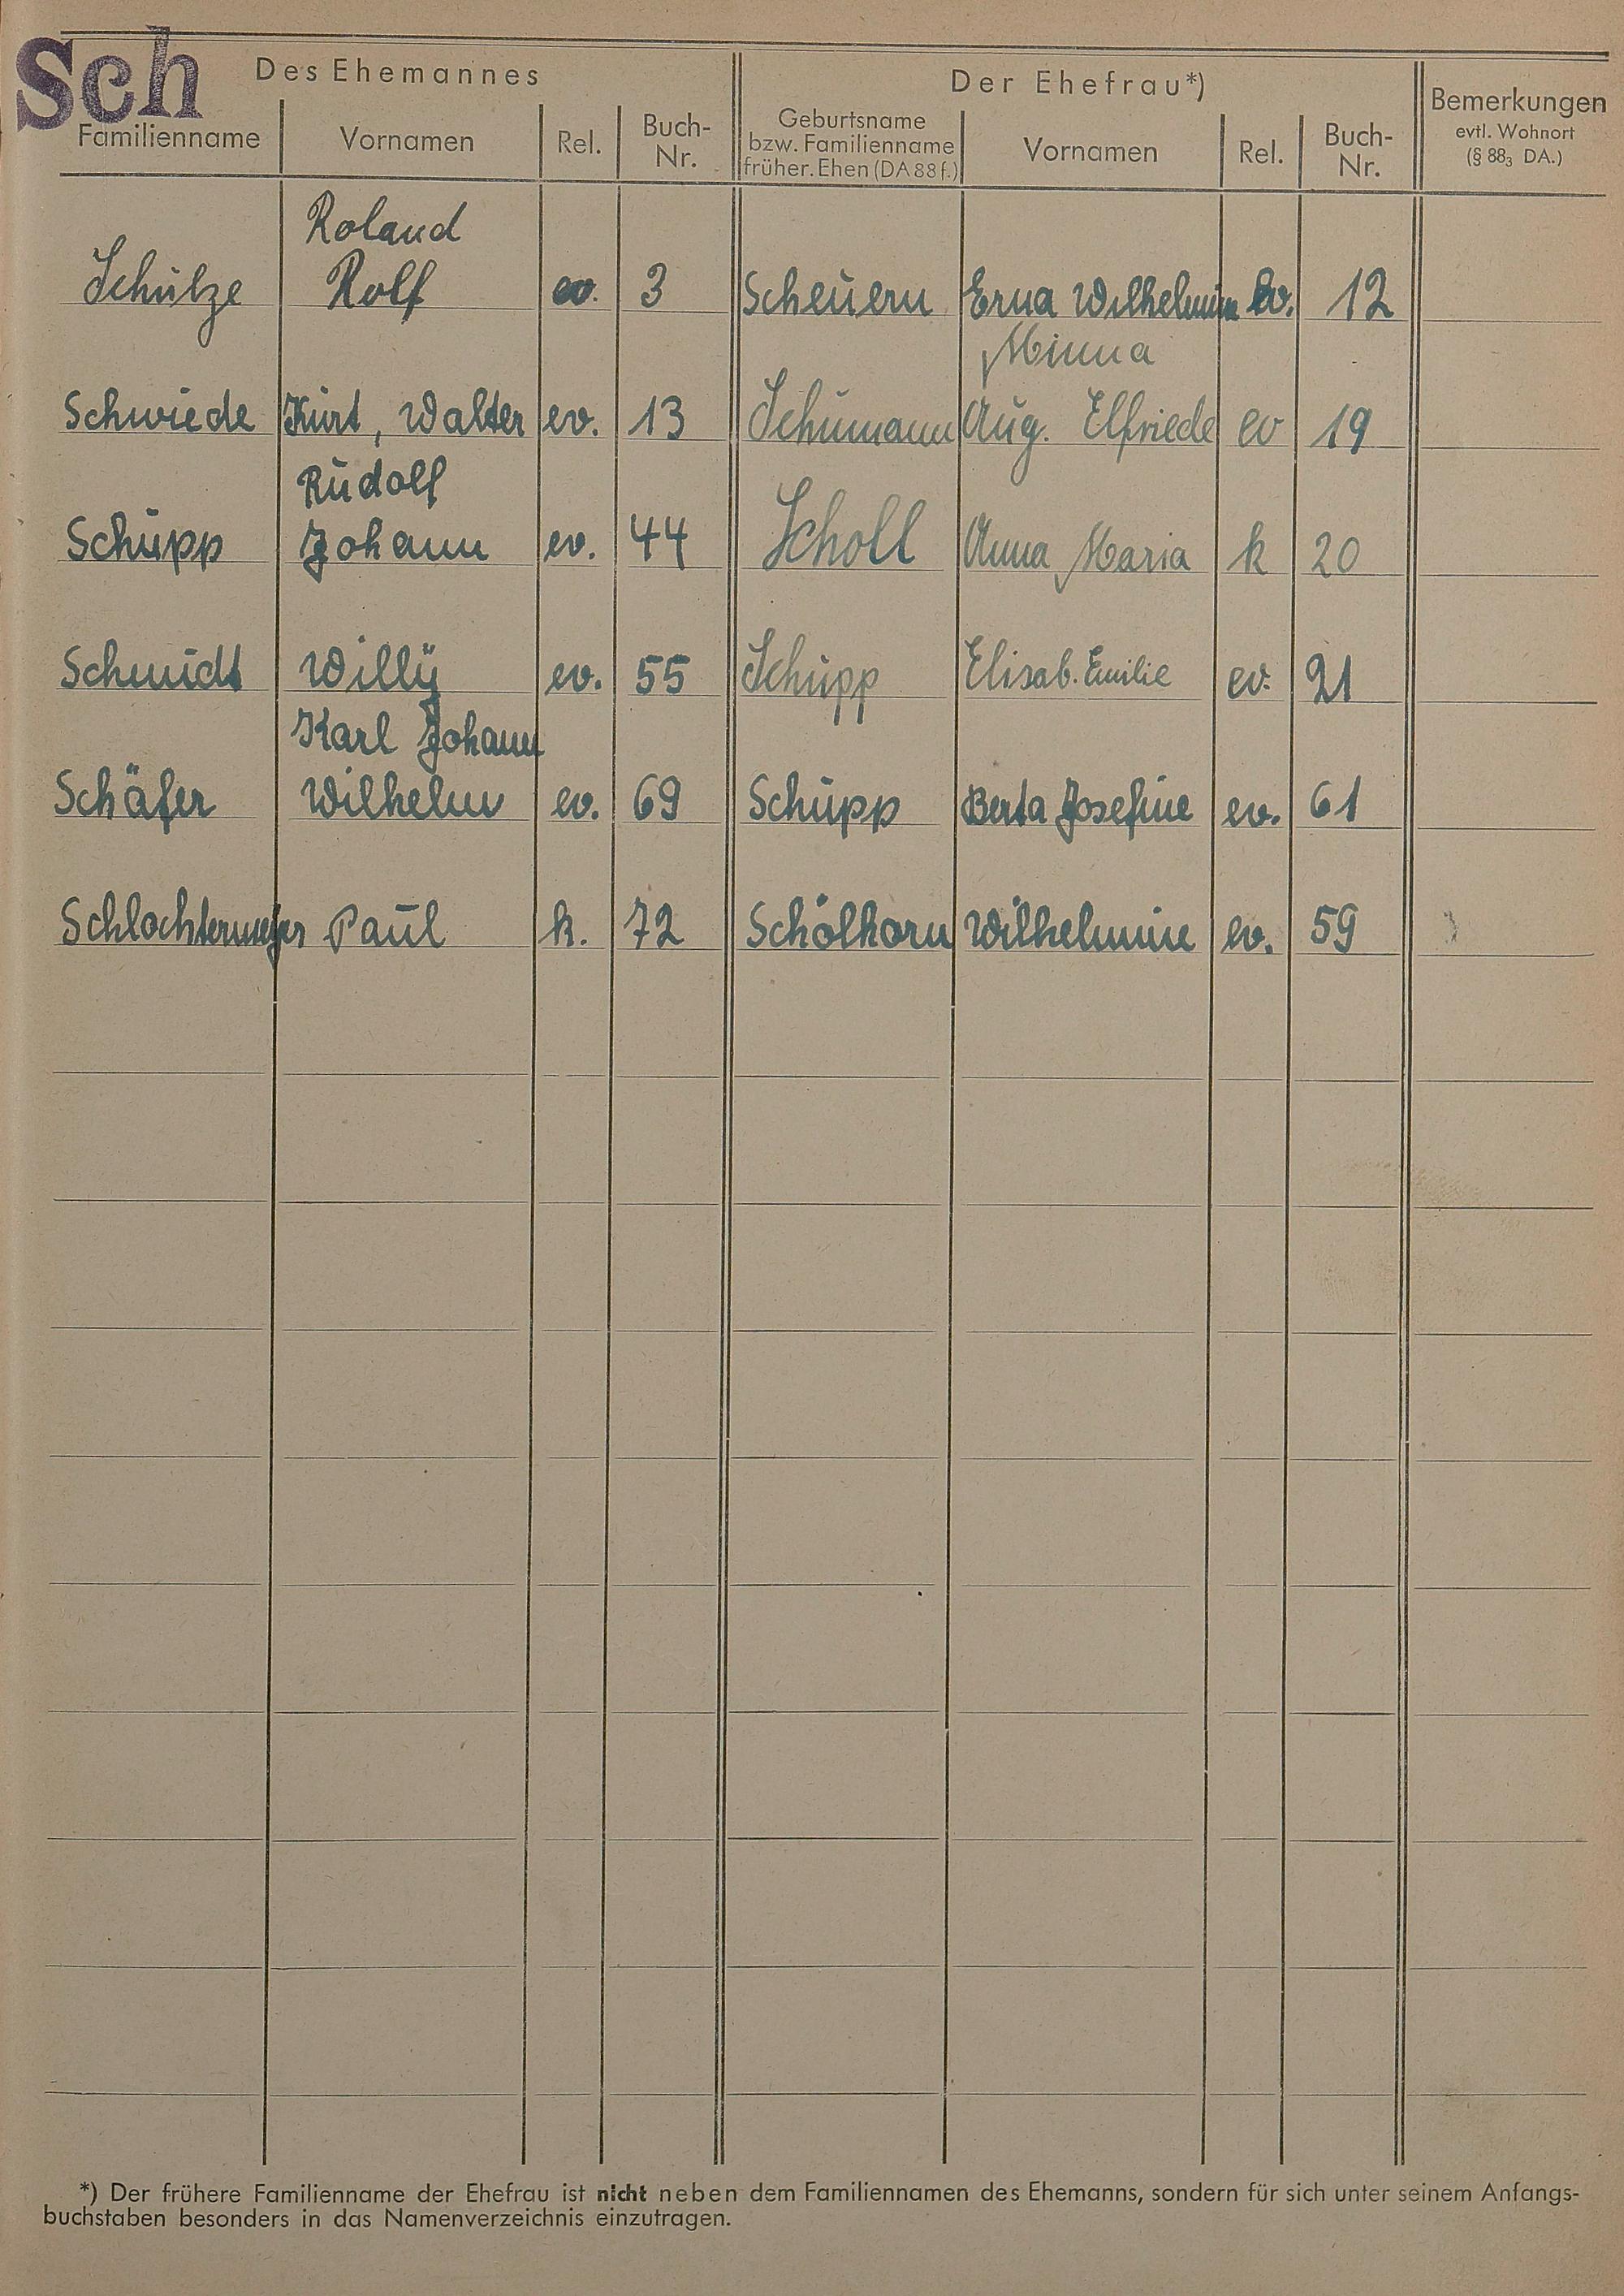 Sch
Des Ehemannes Der Ehefrau*)
Familienname Vornamen Rel. Buch-Nr. Geburtsname bzw. Familienname früher. Ehen (DA 88 f.) Vornamen Rel. Buch-Nr. Bemerkungen evtl. Wohnort (§ 88₃ DA.)
Roland
Schulze Rolf ev. 3 Scheuern Erna Wilhelmin ev. 12
Minna
Schwiede Kurt, Walter ev. 13 Schumann Aug. Elfriede ev 19
Rudolf
Schupp Johann ev. 44 Scholl Anna Maria k 20
Schmidt Willy ev. 55 Schupp Elisab. Emilie ev. 21
Karl Johann
Schäfer Wilhelm ev. 69 Schupp Berta Josefine ev. 61
Schlochtermeyer Paul k. 72 Schölhorn Wilhelmine ev. 59
*) Der frühere Familienname der Ehefrau ist nicht neben dem Familiennamen des Ehemanns, sondern für sich unter seinem Anfangs-
buchstaben besonders in das Namenverzeichnis einzutragen.